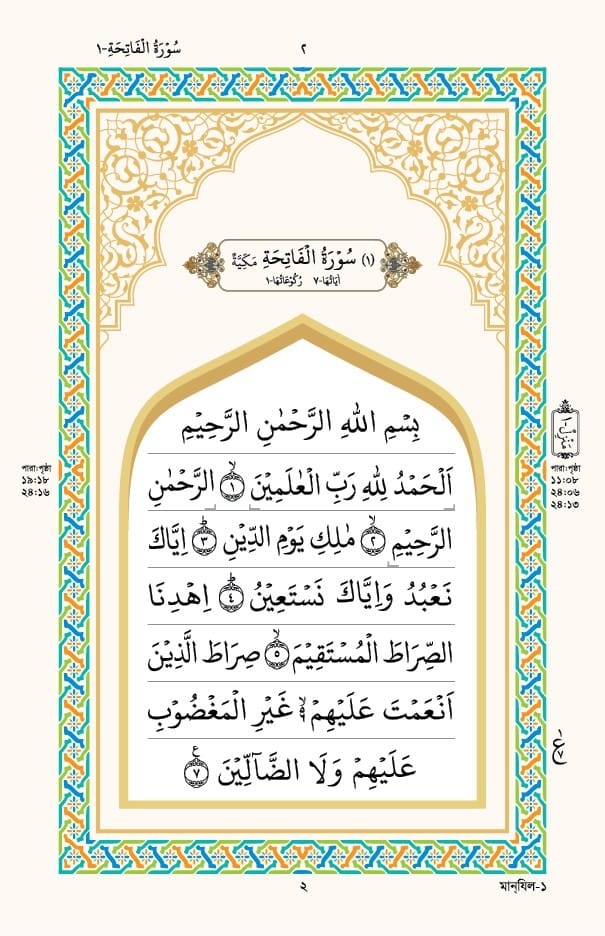 سُوْرَةُ الْفَاتِحَةِ-١
٢
(١) سُوْرَةُ الْفَاتِحَةِ مَكِّيَّةٌ
اٰيَاتُهَا-٧ رُكُوْعَاتُهَا-١
بِسْمِ اللهِ الرَّحْمٰنِ الرَّحِيْمِ
اَلْحَمْدُ لِلّٰهِ رَبِّ الْعٰلَمِيْنَ ۙ﴿١﴾ الرَّحْمٰنِ
الرَّحِيْمِ ۙ﴿٢﴾ مٰلِكِ يَوْمِ الدِّيْنِ ؕ﴿٣﴾ اِيَّاكَ
نَعْبُدُ وَاِيَّاكَ نَسْتَعِيْنُ ؕ﴿٤﴾ اِهْدِنَا
الصِّرَاطَ الْمُسْتَقِيْمَ ۙ﴿٥﴾ صِرَاطَ الَّذِيْنَ
اَنْعَمْتَ عَلَيْهِمْ ۙ۬ۦ غَيْرِ الْمَغْضُوْبِ
عَلَيْهِمْ وَلَا الضَّآلِّيْنَ ﴿٧﴾ ع
مَنْزِل ١
পারা:পৃষ্ঠা
১১:০৮
২৪:০৬
২৪:১৩
পারা:পৃষ্ঠা
১৯:১৮
২৪:১৬
২
মান্‌যিল-১